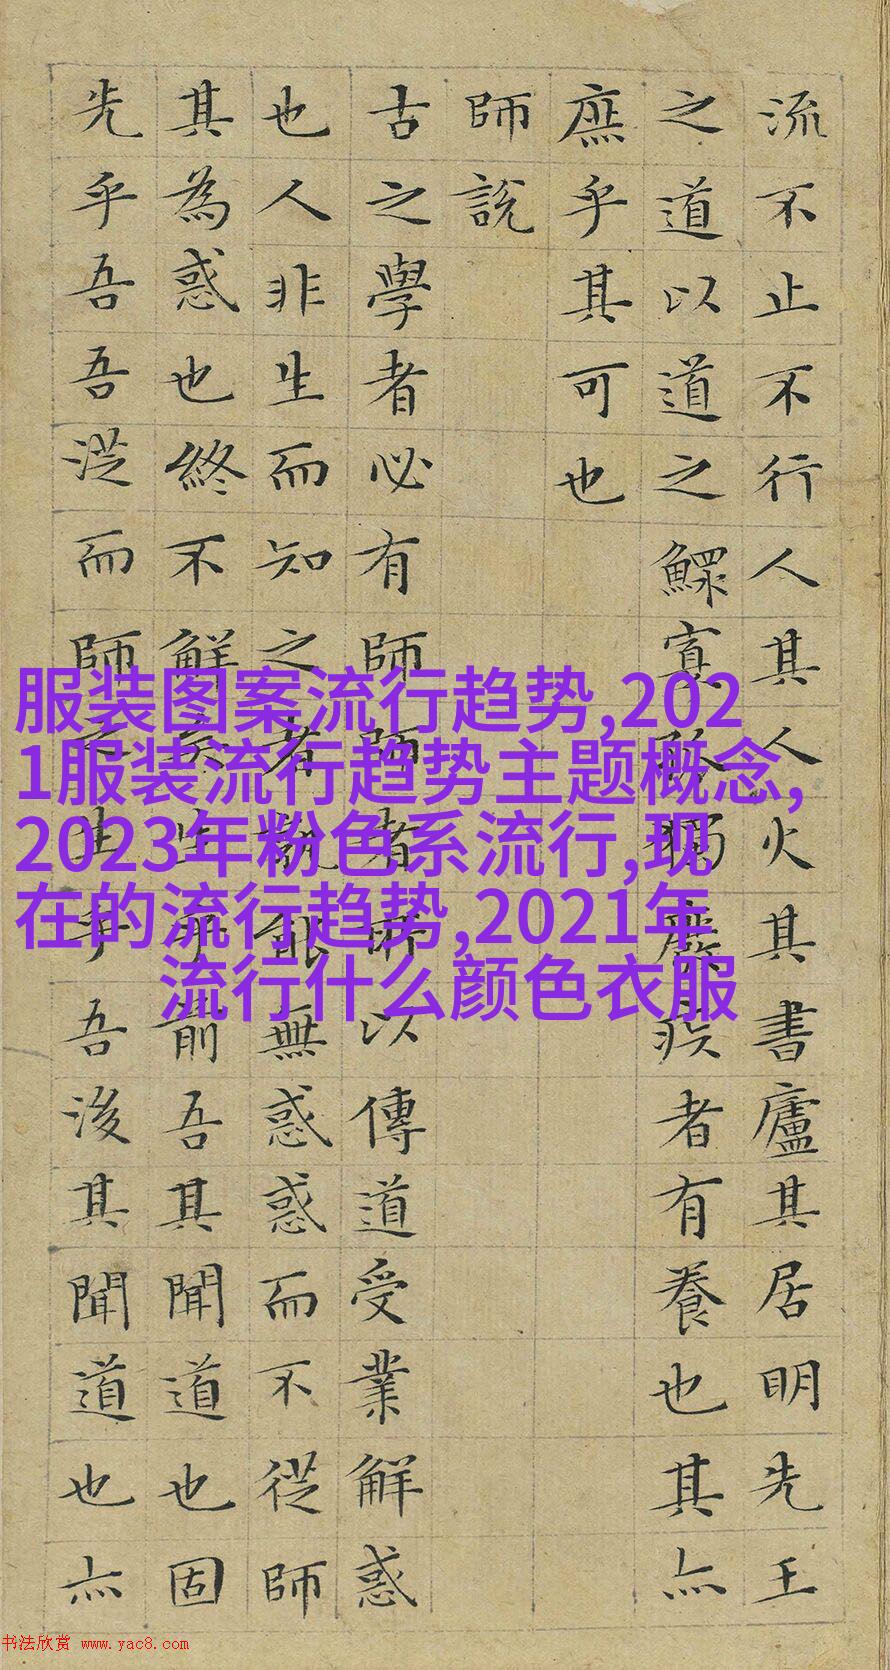 流不止不行人其人火其書廬其居明先王
之道以道之鰥寡孤獨廢疾者有養也其亦
庶乎其可也
師說
古之學者必有師師者所以傳道受業解惑
也人非生而知之者孰能無惑惑而不從師
其為惑也終不解矣生乎前吾其聞道也固
先乎吾吾從而師之生乎吾後其聞道也亦
服装图案流行趋势,202
1服装流行趋势主题概念,
2023年粉色系流行,现
在的流行趋势,2021年
流行什么颜色衣服
书法欣赏 www.yac8.com